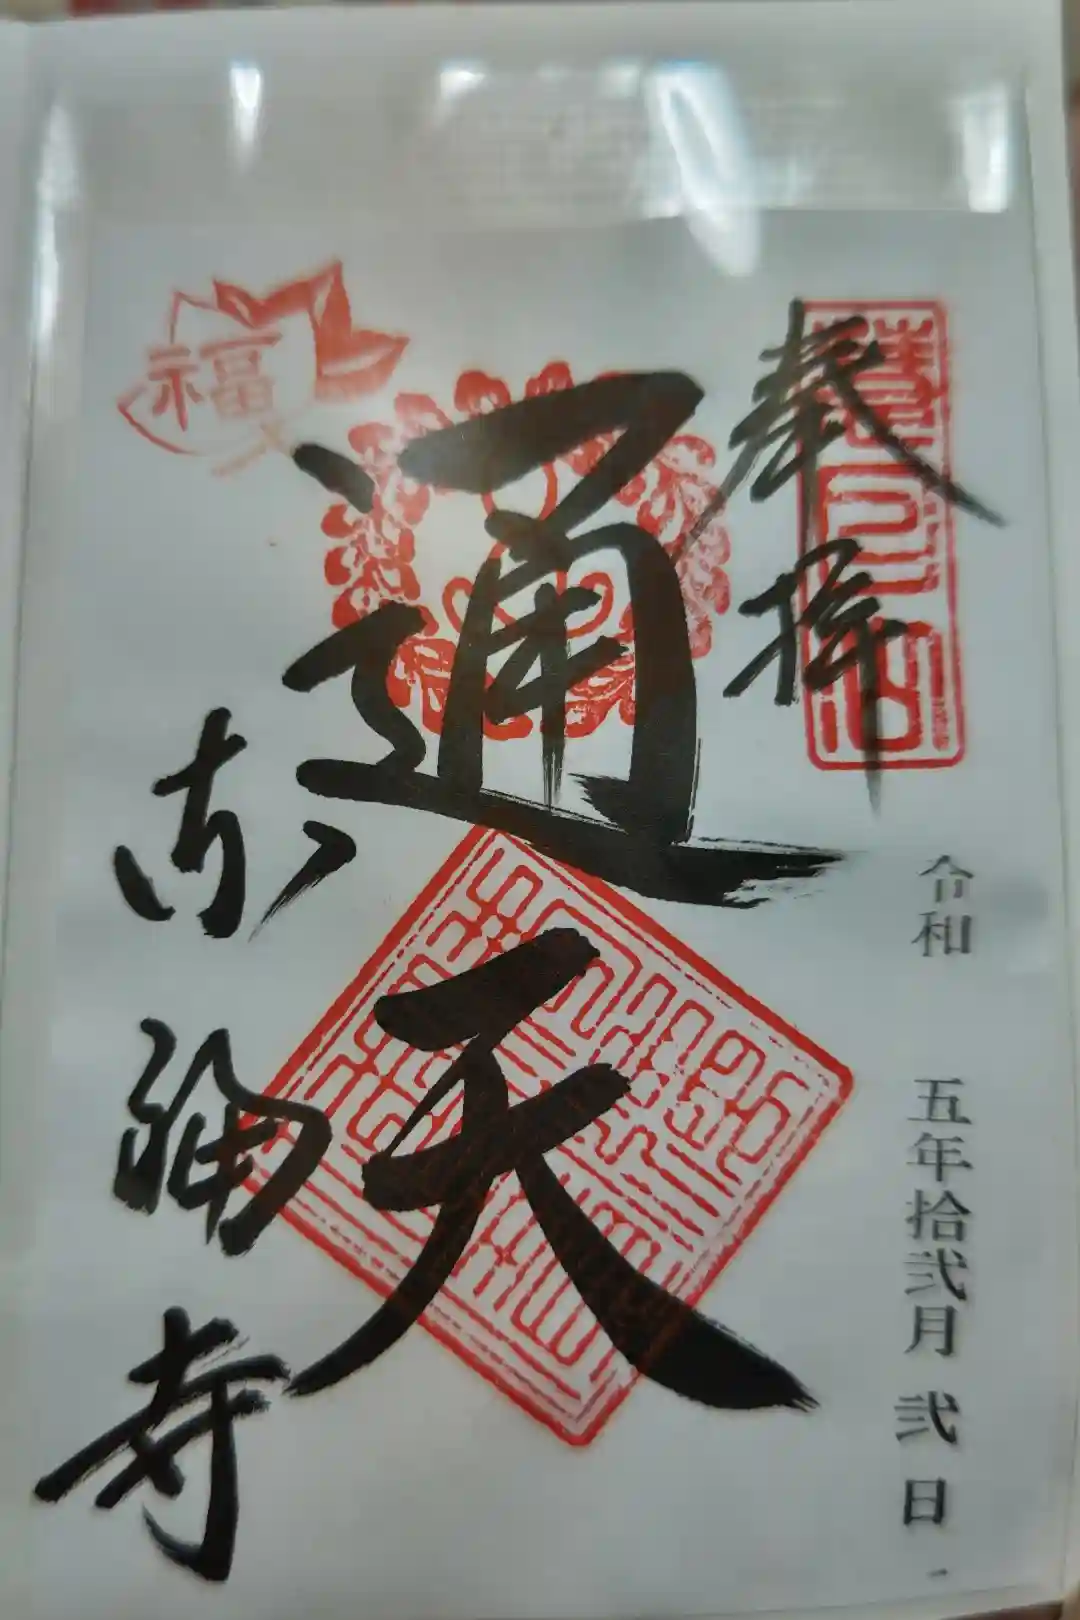 奉拝
慧日山
令和 五年拾弐月 弐日
通天
福
東福寺